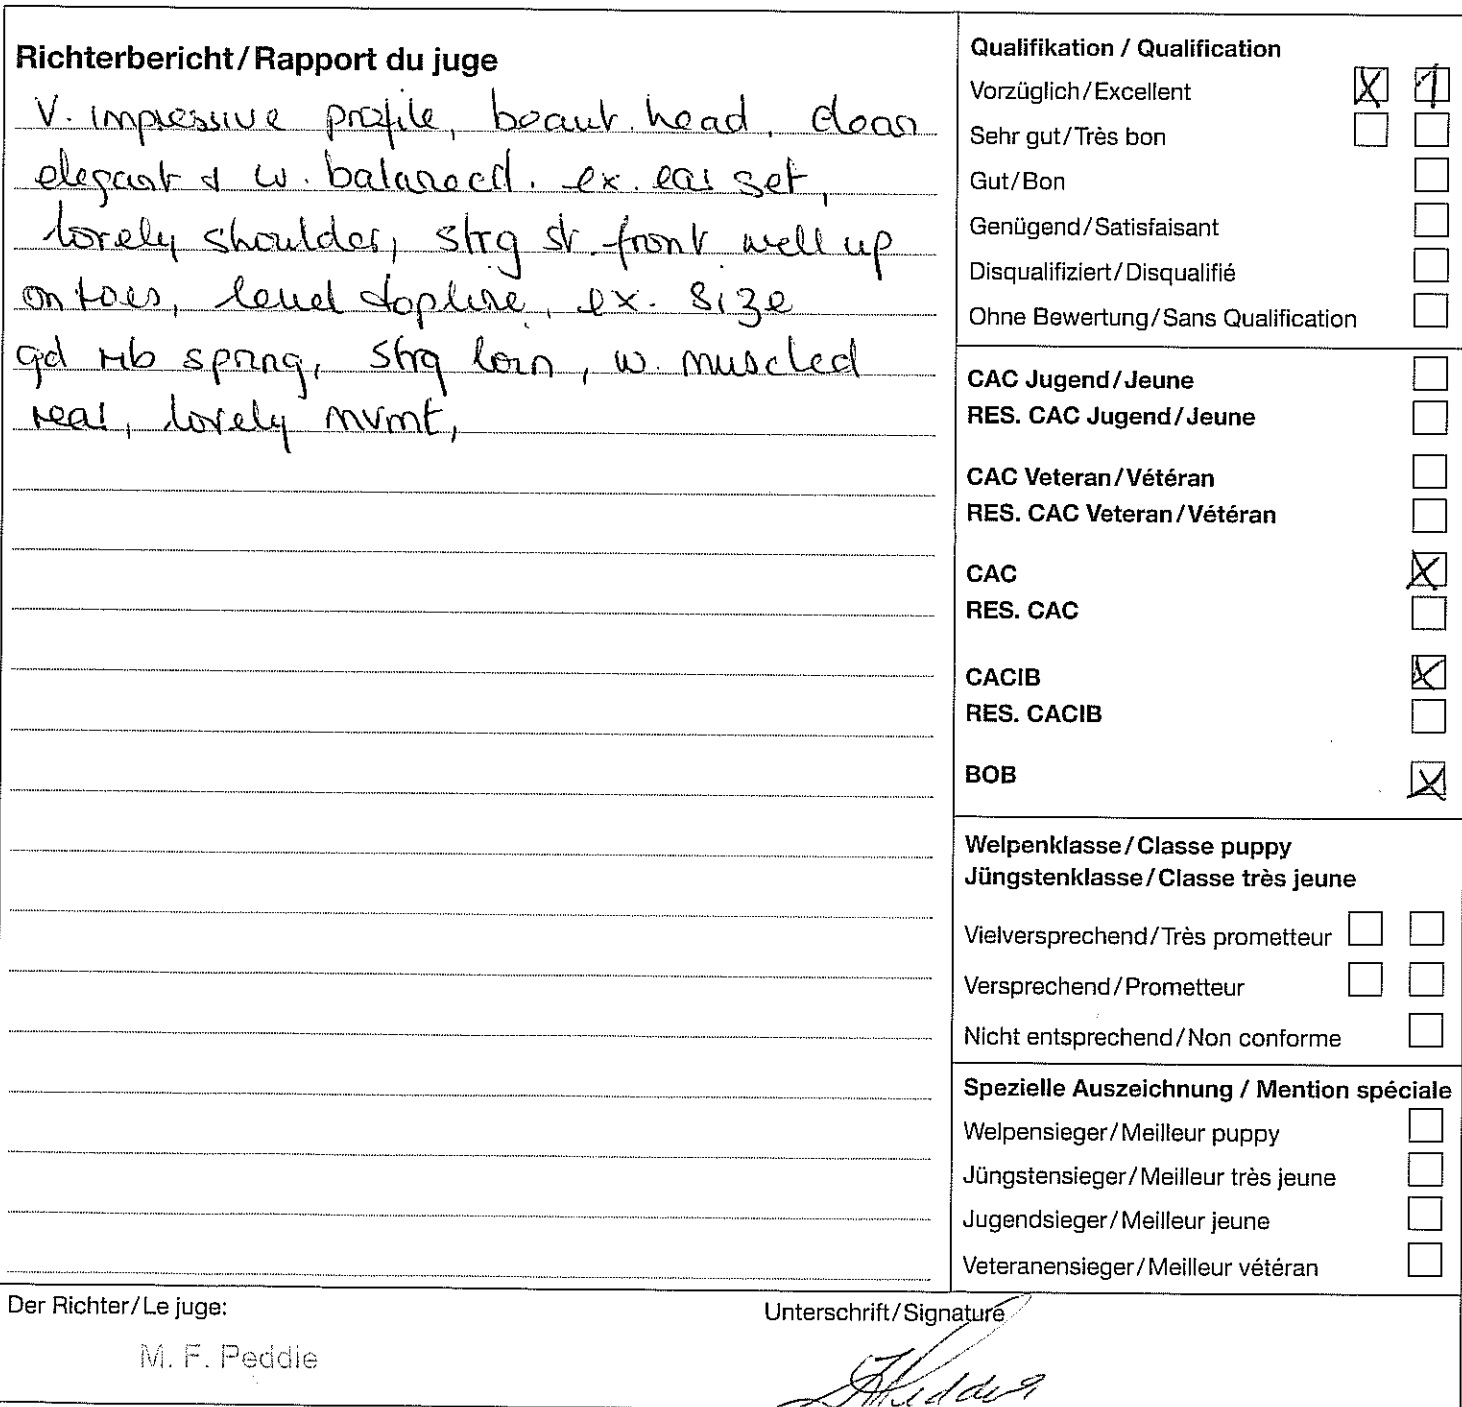 Richterbericht/Rapport du juge
V. impressive profile, beaut. head, clean
elegant & w. balanced. ex. ear set,
lovely shoulder, strg st. front well up
on toes, level topline, ex. size
gd rib spring, strg loin, w. muscled
rear, lovely mvmt,
Der Richter/Le juge:
M. F. Peddie
Unterschrift/Signature
Qualifikation / Qualification
Vorzüglich/Excellent X 1
Sehr gut/Très bon
Gut/Bon
Genügend/Satisfaisant
Disqualifiziert/Disqualifié
Ohne Bewertung/Sans Qualification
CAC Jugend/Jeune
RES. CAC Jugend/Jeune
CAC Veteran/Vétéran
RES. CAC Veteran/Vétéran
CAC X
RES. CAC
CACIB X
RES. CACIB
BOB X
Welpenklasse/Classe puppy
Jüngstenklasse/Classe très jeune
Vielversprechend/Très prometteur
Versprechend/Prometteur
Nicht entsprechend/Non conforme
Spezielle Auszeichnung / Mention spéciale
Welpensieger/Meilleur puppy
Jüngstensieger/Meilleur très jeune
Jugendsieger/Meilleur jeune
Veteranensieger/Meilleur vétéran